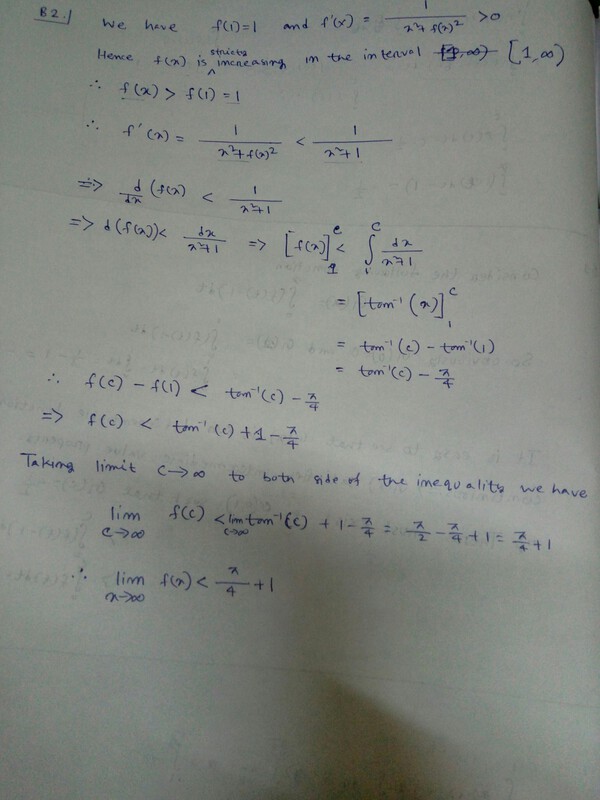 B2. We have f(1)=1 and f'(x) = 1/(x²+f(x)²) >0
Hence f(x) is strictly increasing in the interval [1,∞)
∴ f(x) > f(1) = 1
∴ f'(x) = 1/(x²+f(x)²) < 1/(x²+1)
=> d/dx (f(x) < 1/(x²+1)
=> d(f(x)) < dx/(x²+1) => [f(x)]₁ᶜ < ∫₁ᶜ dx/(x²+1)
= [tan⁻¹(x)]₁ᶜ
= tan⁻¹(c) - tan⁻¹(1)
= tan⁻¹(c) - π/4
∴ f(c) - f(1) < tan⁻¹(c) - π/4
=> f(c) < tan⁻¹(c) + 1 - π/4
Taking limit c→∞ to both side of the inequality we have
lim c→∞ f(c) < lim c→∞ tan⁻¹(c) + 1 - π/4 = π/2 - π/4 + 1 = π/4 + 1
∴ lim x→∞ f(x) < π/4 + 1